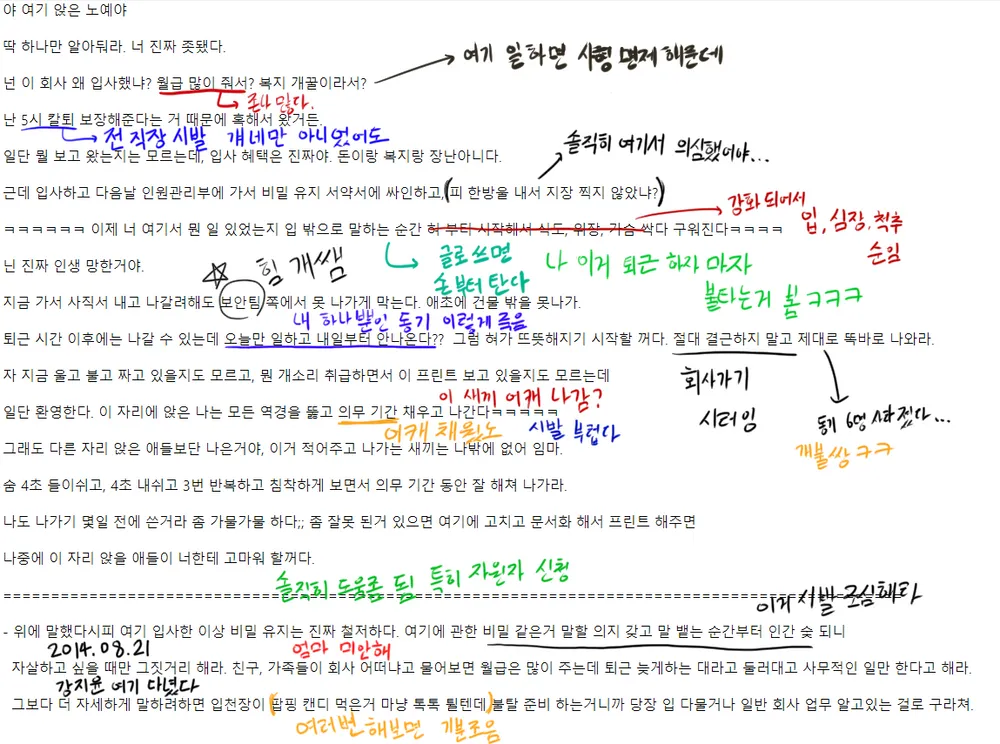 야 여기 앉은 노예야
딱 하나만 알아둬라. 너 진짜 좃됐다.
여기 일하면 사형 면제 해준데
넌 이 회사 왜 입사했냐? 월급 많이 줘서? 복지 개꿀이라서?
존나 많다.
난 5시 칼퇴 보장해준다는 거 때문에 혹해서 왔거든.
전 직장 시발 걔네만 아니었어도
솔직히 여기서 의심했어야...
일단 뭘 보고 왔는지는 모르는데, 입사 혜택은 진짜야. 돈이랑 복지랑 장난아니다.
근데 입사하고 다음날 인원관리부에 가서 비밀 유지 서약서에 싸인하고,(피 한방울 내서 지장 찍지 않았냐?)
강화 되어서
입, 심장, 척추
순임
ㅋㅋㅋㅋㅋㅋ 이제 너 여기서 뭔 일 있었는지 입 밖으로 말하는 순간 혀 부터 시작해서 식도, 위장, 가슴 싹다 구워진다ㅋㅋㅋㅋ
글로 쓰면
손부터 탄다
나 이거 퇴근 하자 마자
불타는거 봄 ㅋㅋㅋ
닌 진짜 인생 망한거야.
힘 개쌤
지금 가서 사직서 내고 나갈려해도 보안팀 쪽에서 못 나가게 막는다. 애초에 건물 밖을 못나가.
내 하나뿐인 동기 이렇게 죽음
퇴근 시간 이후에는 나갈 수 있는데 오늘만 일하고 내일부터 안나온다?? 그럼 혀가 뜨뜻해지기 시작할 꺼다. 절대 결근하지 말고 제대로 똑바로 나와라.
회사가기
시러잉
동기 6명 사라졌다...
개불쌍 ㅋㅋ
자 지금 울고 불고 짜고 있을지도 모르고, 뭔 개소리 취급하면서 이 프린트 보고 있을지도 모르는데
이 새끼 어캐 나감?
일단 환영한다. 이 자리에 앉은 나는 모든 역경을 뚫고 의무 기간 채우고 나간다ㅋㅋㅋㅋㅋ
어캐 채웠노
시발 부럽다
그래도 다른 자리 앉은 애들보단 나은거야, 이거 적어주고 나가는 새끼는 나밖에 없어 임마.
숨 4초 들이쉬고, 4초 내쉬고 3번 반복하고 침착하게 보면서 의무 기간 동안 잘 해쳐 나가라.
나도 나가기 몇일 전에 쓴거라 좀 가물가물 하다;; 좀 잘못 된거 있으면 여기에 고치고 문서화 해서 프린트 해주면
나중에 이 자리 앉을 애들이 너한테 고마워 할꺼다.
솔직히 도움좀 됨 특히 자원자 신청
이거 시발 조심해라
- 위에 말했다시피 여기 입사한 이상 비밀 유지는 진짜 철저하다. 여기에 관한 비밀 같은거 말할 의지 갖고 말 뱉는 순간부터 인간 숯 되니
2014.08.21
엄마 미안해
자살하고 싶을 때만 그짓거리 해라. 친구, 가족들이 회사 어떠냐고 물어보면 월급은 많이 주는데 퇴근 늦게하는 대라고 둘러대고 사무적인 일만 한다고 해라.
강지윤 여기 다녔다
그보다 더 자세하게 말하려하면 입천장이 (팝핑 캔디 먹은거 마냥 톡톡 튈텐데)불탈 준비 하는거니까 당장 입 다물거나 일반 회사 업무 알고있는 걸로 구라쳐.
여러번 해보면 기분조음